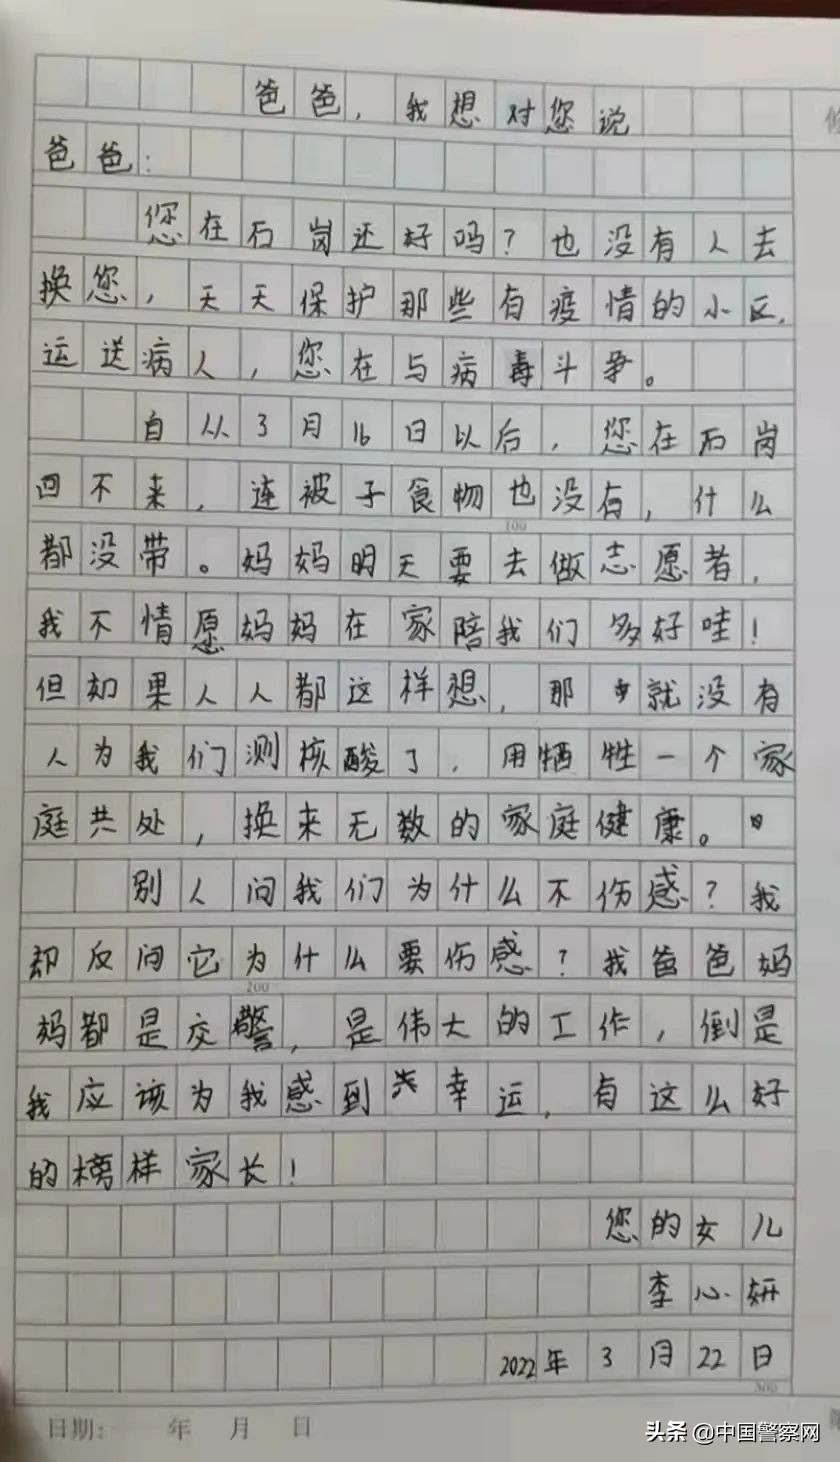 爸爸，我想对您说
爸爸：
您在石岗还好吗？也没有人去
换您，天天保护那些有疫情的小区，
运送病人，您在与病毒斗争。
自从3月16日以后，您在石岗
回不来，连被子食物也没有，什么
100
都没带。妈妈明天要去做志愿者，
我不情愿妈妈在家陪我们多好哇！
但如果人人都这样想，那就没有
人为我们测核酸了，用牺牲一个家
庭共处，换来无数的家庭健康。
别人问我们为什么不伤感？我
却反问它为什么要伤感？我爸爸妈
200
妈都是交警，是伟大的工作，倒是
我应该为我感到幸运，有这么好
的榜样家长！
您的女儿
李心妍
2022年3月22日
300
日期： 年 月 日
头条 @中国警察网